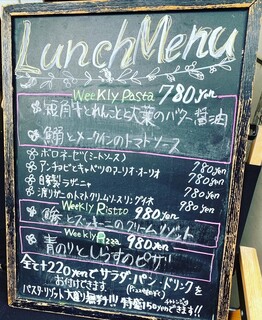 Lunch Menu
Weekly Pasta 780yen
短角牛とれんこんと大葉のバター醤油
鰯とメークインのトマトソース
ボロネーゼ(ミートソース) 780yen
アンチョビとキャベツのアーリオ・オーリオ 780yen
自家製ラザーニャ 780yen
渡りガニのトマトクリームソース リングイネ 780yen
Weekly Risotto 980yen
とズッキーニのクリームリゾット
Weekly Pizza 980yen
青のりとしらすのピザ
全て+220yenでサラダ・パン・ドリンクを
お付けできます。
パスタ・リゾット大盛り無料!!! 特盛150yenできます!!